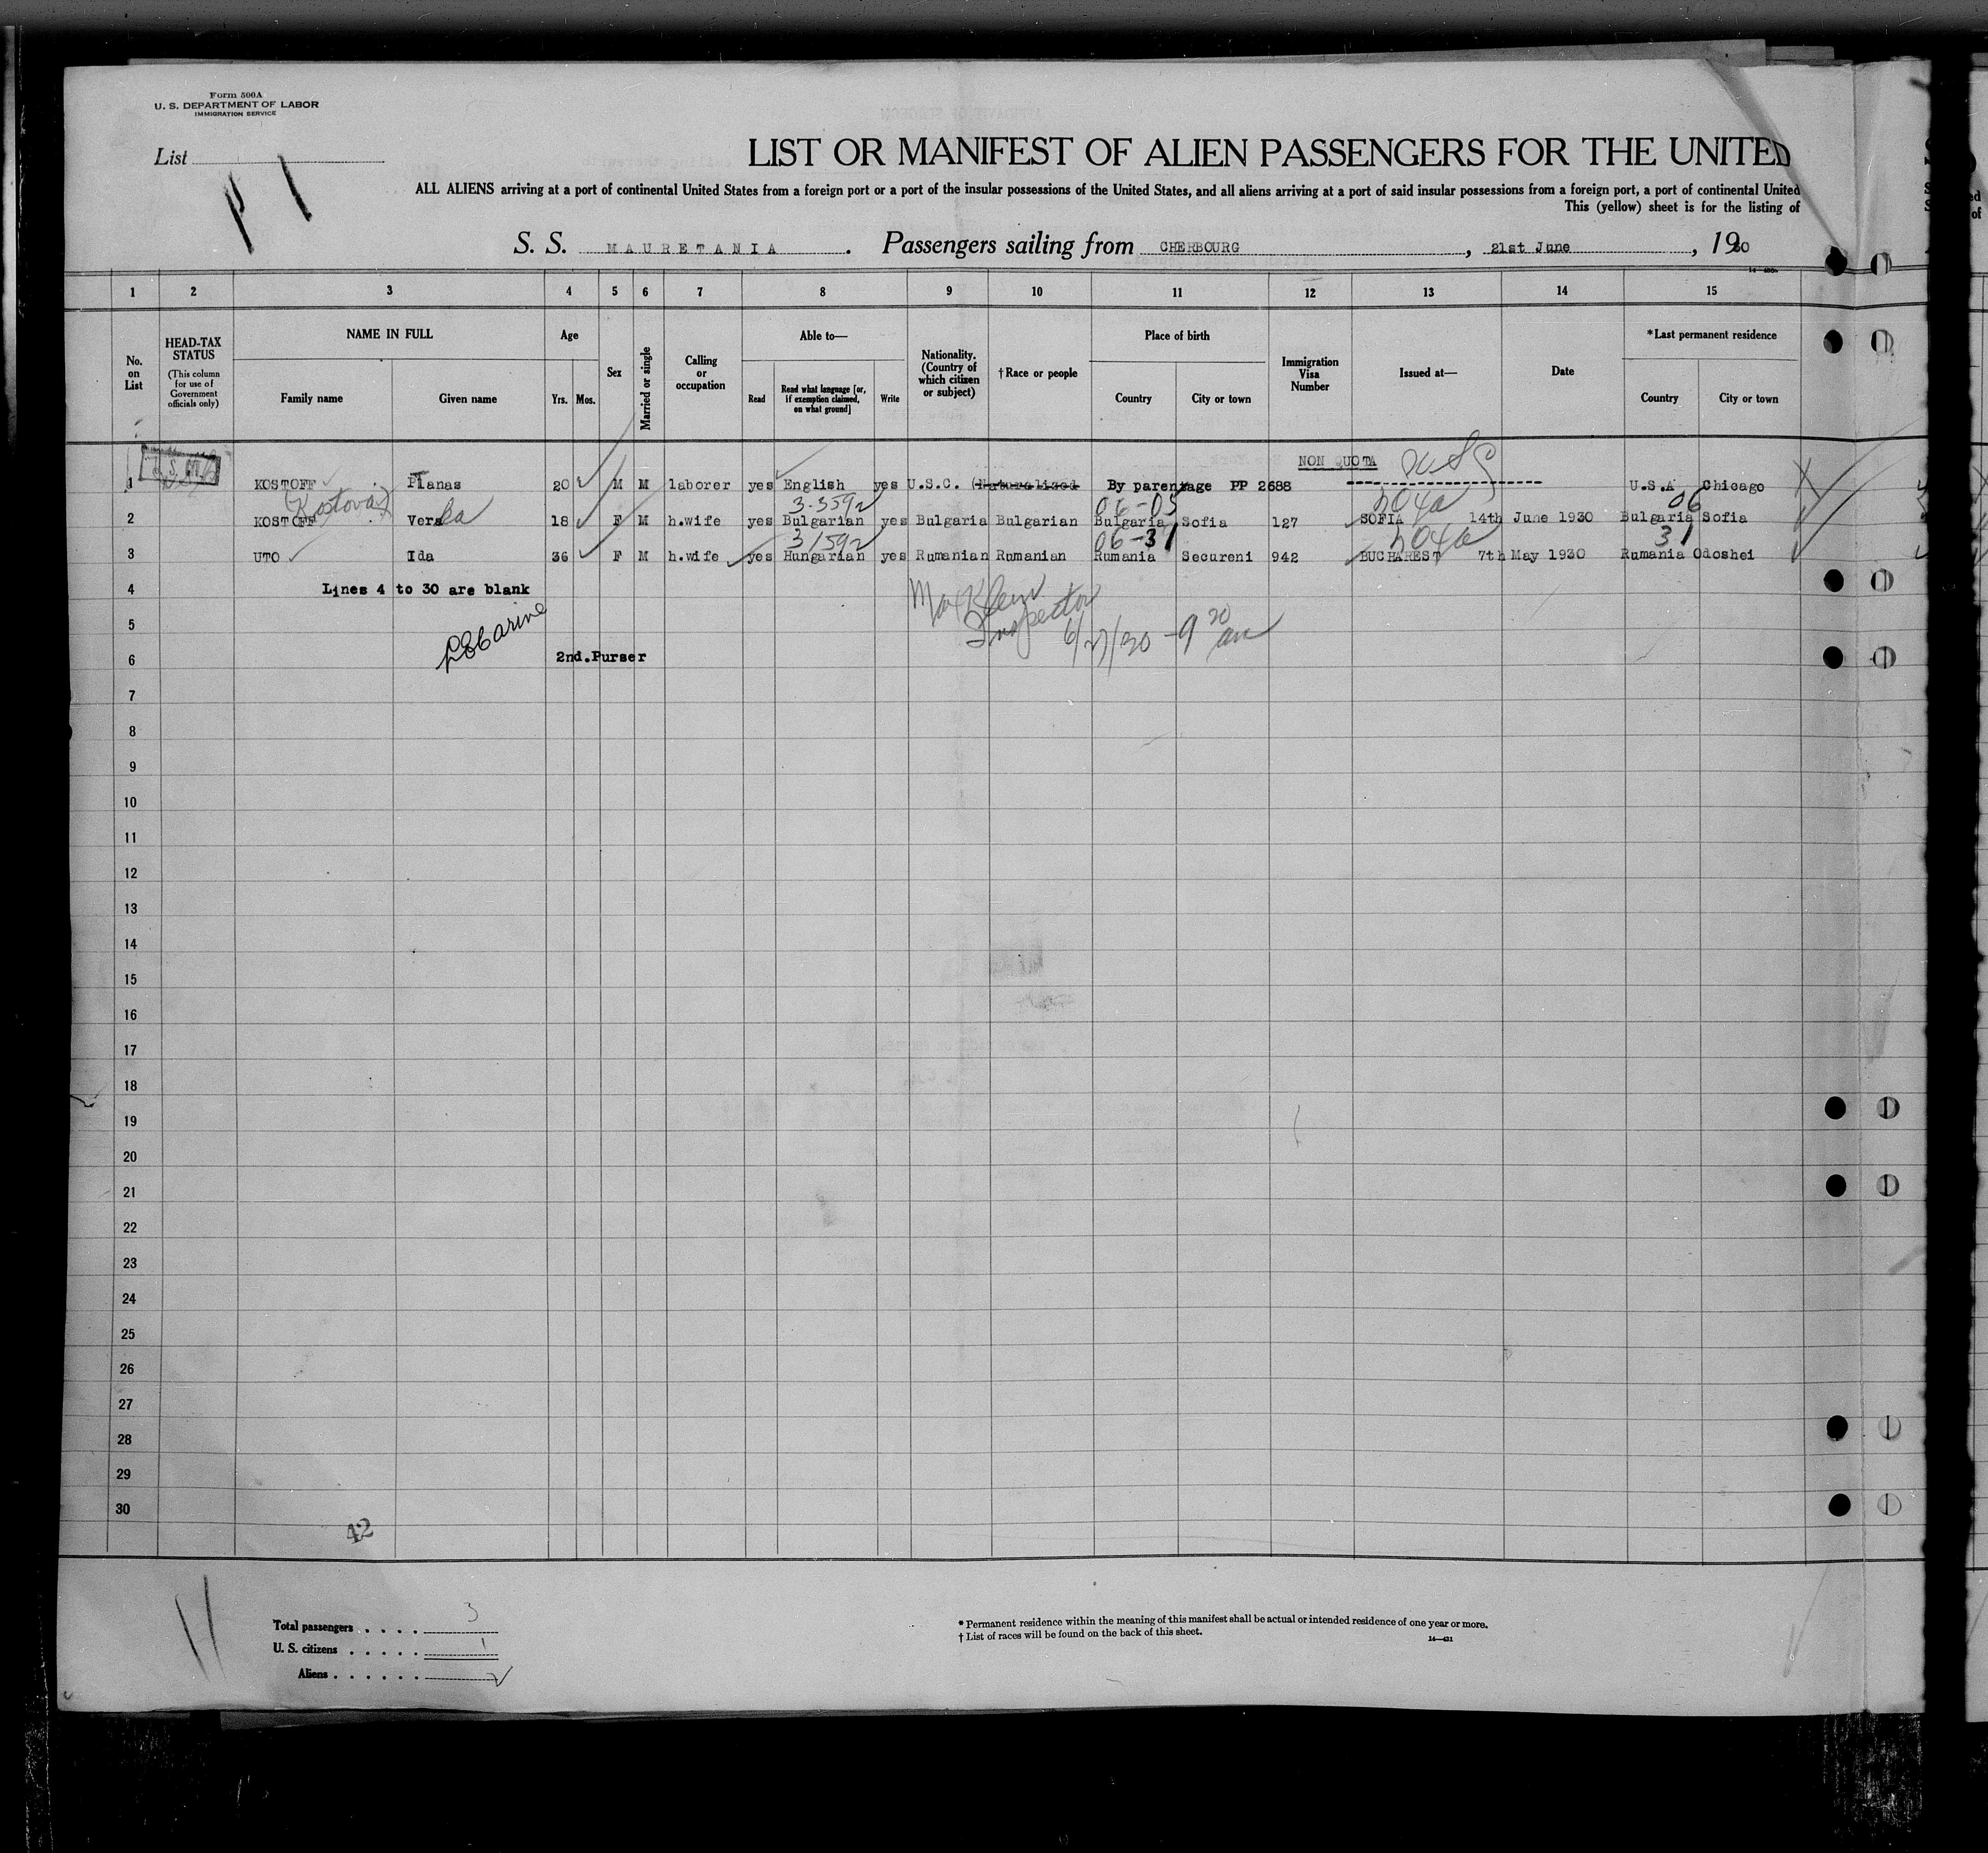 Form 500A
U. S. DEPARTMENT OF LABOR
IMMIGRATION SERVICE
List
P 1
LIST OR MANIFEST OF ALIEN PASSENGERS FOR THE UNITED
ALL ALIENS arriving at a port of continental United States from a foreign port or a port of the insular possessions of the United States, and all aliens arriving at a port of said insular possessions from a foreign port, a port of continental United
This (yellow) sheet is for the listing of
S. S. MAURETANIA. Passengers sailing from CHERBOURG, 21st June, 1930
1 2 3 4 5 6 7 8 9 10 11 12 13 14 15
No. on List
HEAD-TAX STATUS (This column for use of Government officials only)
NAME IN FULL
Family name Given name
Age
Yrs. Mos.
Sex
Married or single
Calling or occupation
Able to—
Read Read what language [or, if exemption claimed, on what ground] Write
Nationality. (Country of which citizen or subject)
†Race or people
Place of birth
Country City or town
Immigration Visa Number
Issued at—
Date
*Last permanent residence
Country City or town
NON QUOTA
1 KOSTOFF Planas 20 M M laborer yes English yes U.S.C. (Naturalized By parentage PP 2688 U.S.A Chicago
(Kostova) ka 3-3592 06-05 n04a 06
2 KOSTOFF Vera 18 F M h.wife yes Bulgarian yes Bulgaria Bulgarian Bulgaria Sofia 127 SOFIA 14th June 1930 Bulgaria Sofia
31592 06-31 n04a 31
3 UTO Ida 36 F M h.wife yes Hungarian yes Rumanian Rumanian Rumania Secureni 942 BUCHAREST 7th May 1930 Rumania Odoshei
4 Lines 4 to 30 are blank
Klein
5 Inspector 6/27/30 - 9 20 am
6 2nd.Purser
7
8
9
10
11
12
13
14
15
16
17
18
19
20
21
22
23
24
25
26
27
28
29
30
42
Total passengers . . . . 3
U. S. citizens . . . . . 1
Aliens . . . . . .
* Permanent residence within the meaning of this manifest shall be actual or intended residence of one year or more.
† List of races will be found on the back of this sheet.
14—431